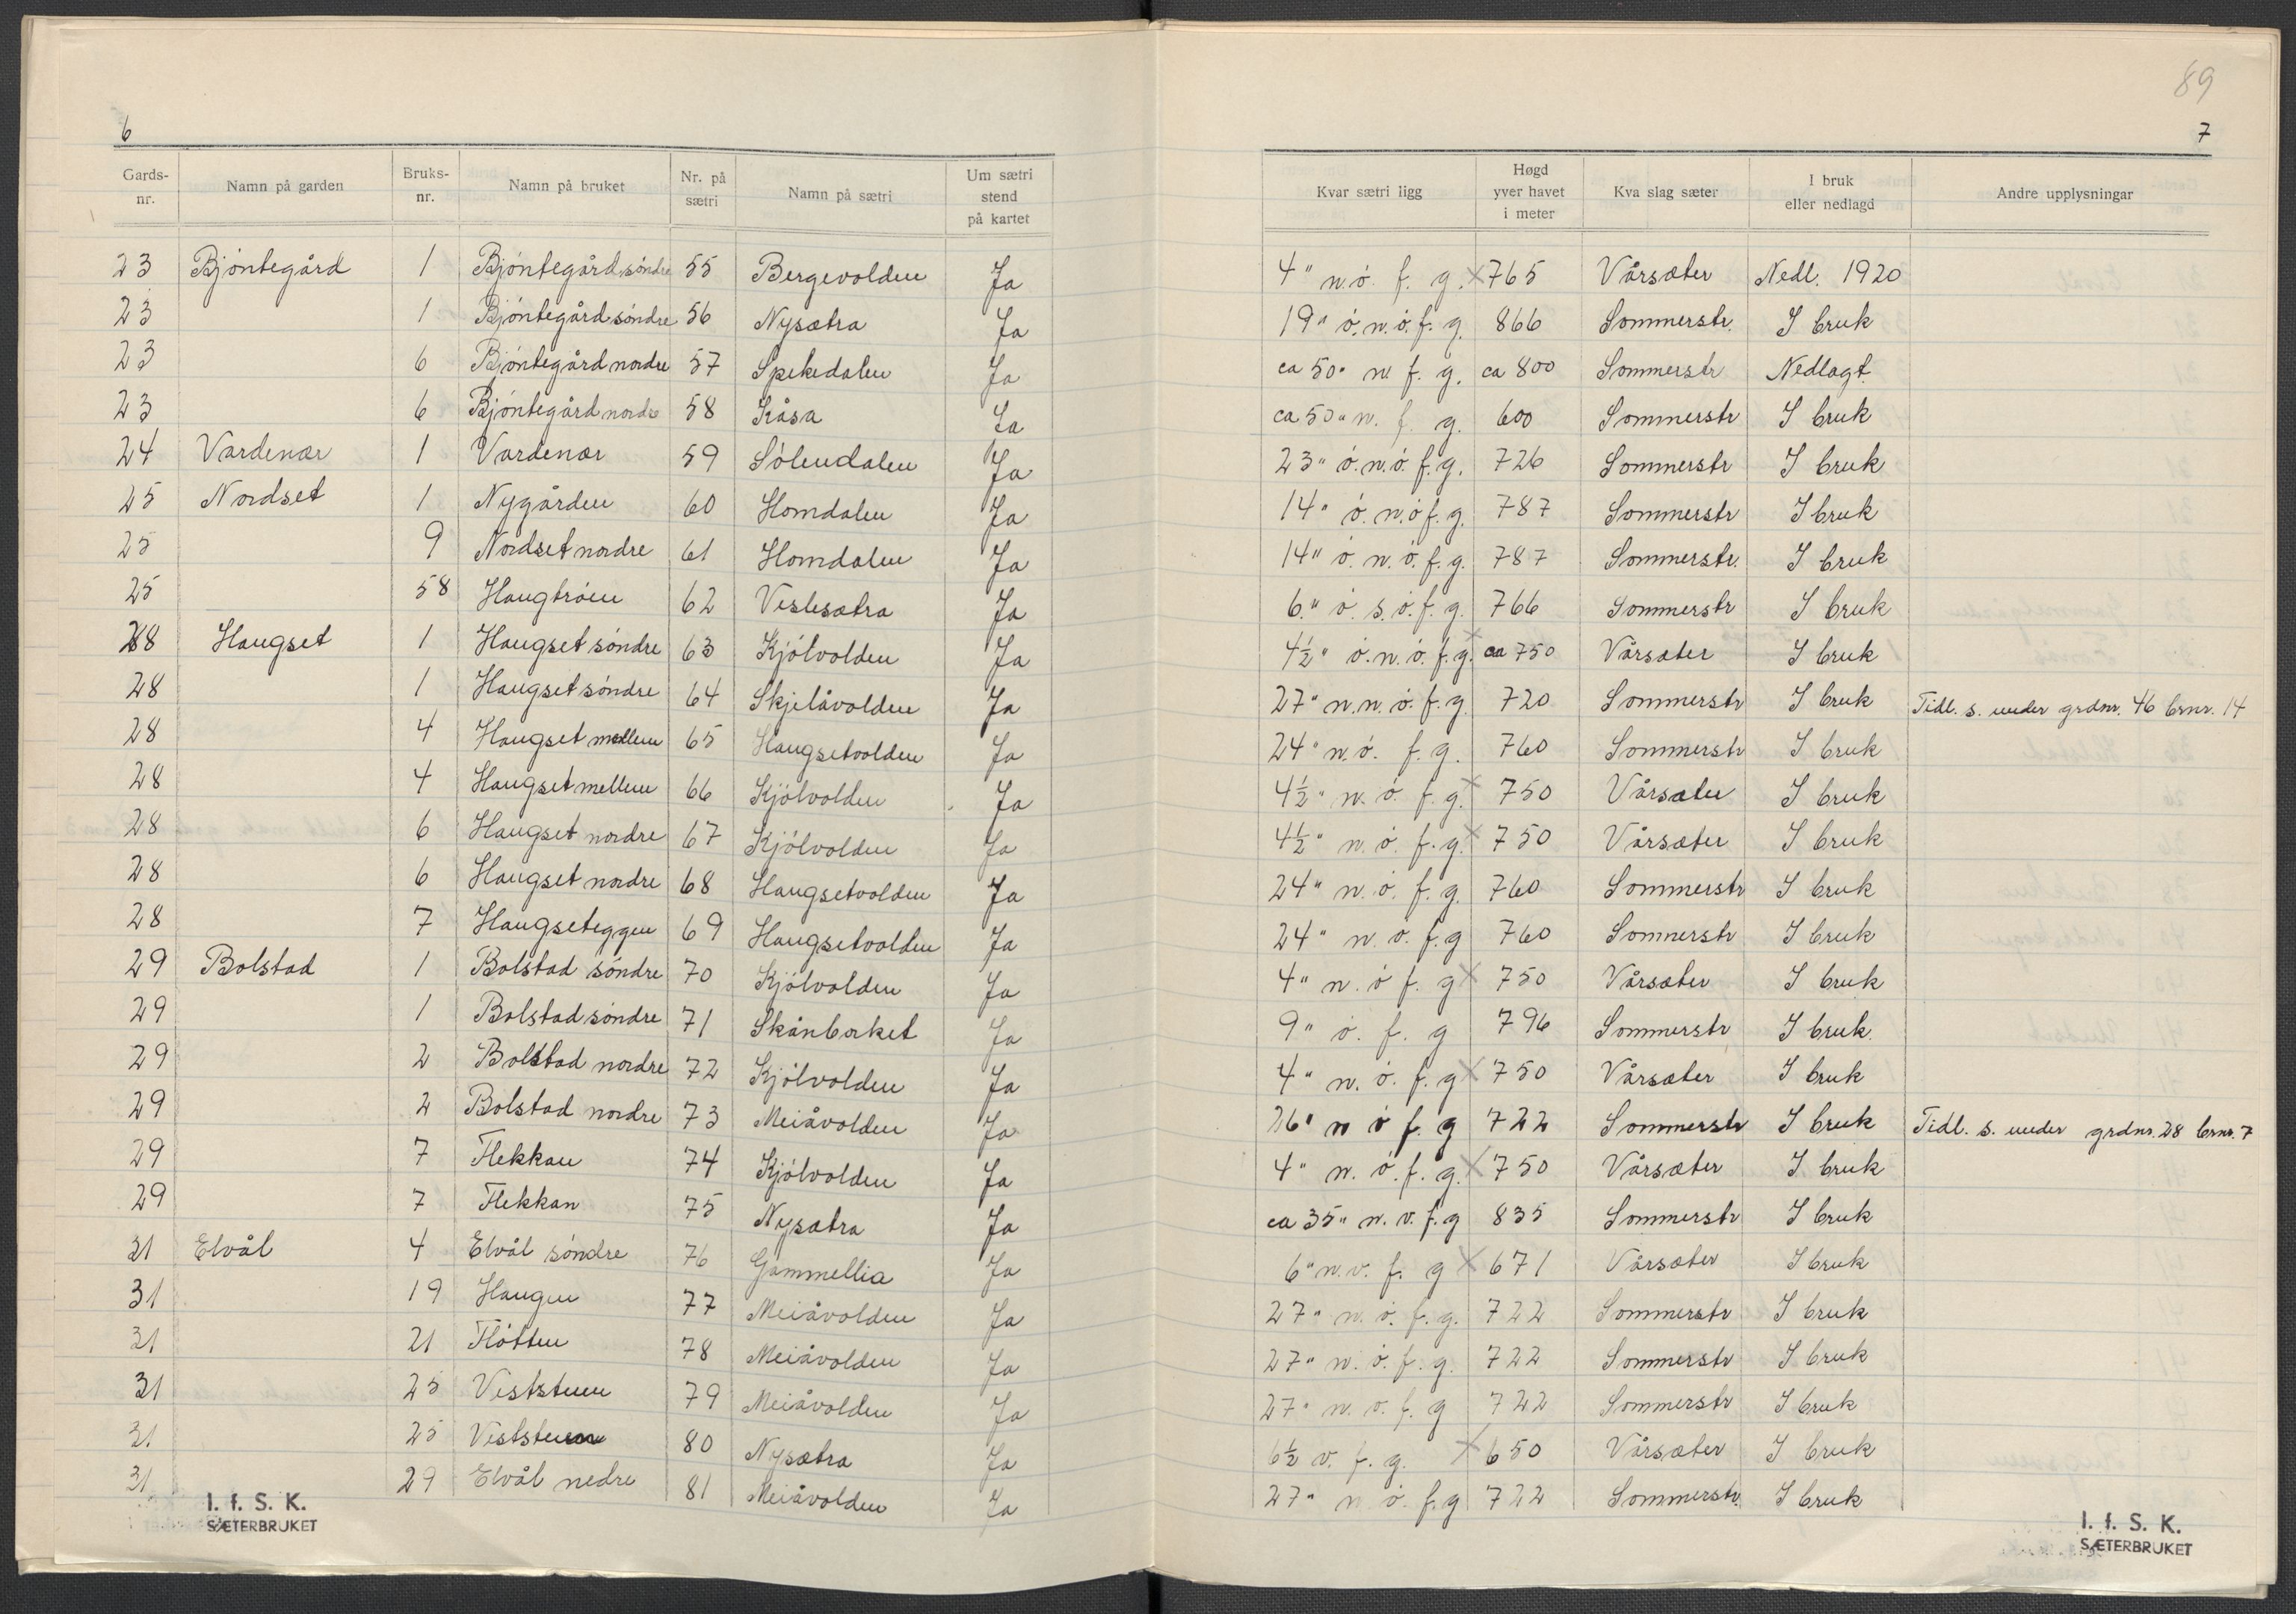 89
6
7
Gards-nr. | Namn på garden | Bruks-nr. | Namn på bruket | Nr. på sætri | Namn på sætri | Um sætri stend på kartet | Kvar sætri ligg | Høgd yver havet i meter | Kva slag sæter | I bruk eller nedlagd | Andre upplysningar
23 Bjöntegård 1 Bjöntegård söndre 55 Bergevolden Ja 4" n.ö. f. g. × 765 Vårsæter Nedl. 1920
23 1 Bjöntegård söndre 56 Nysætra Ja 19" ö.n.ö.f.g. 866 Sommerstr. I bruk
23 6 Bjöntegård nordre 57 Spekedalen Ja ca 50" n f. g. ca 800 Sommerstr Nedlagt.
23 6 Bjöntegård nordre 58 Kåsa Ja ca 50" n. f. g. 600 Sommerstr I bruk
24 Vardenær 1 Vardenær 59 Sölendalen Ja 23" ö.n.ö.f.g. 726 Sommerstr I bruk
25 Nordset 1 Nygården 60 Homdalen Ja 14" ö.n.ö f.g. 787 Sommerstr I bruk
25 9 Nordset nordre 61 Homdalen Ja 14" ö.n.ö.f.g. 787 Sommerstr. I bruk
25 58 Haugtröen 62 Veslesætra Ja 6" ö.s.ö.f.g. 766 Sommerstr I bruk
28 Haugset 1 Haugset söndre 63 Kjölvolden Ja 4½" ö.n.ö.f.g. × ca 750 Vårsæter I bruk
28 1 Haugset söndre 64 Skjelåvolden Ja 27" n.n.ö.f.g. 720 Sommerstr I bruk Tidl. s. under grdnr. 46 brnr. 14
28 4 Haugset mellem 65 Haugsetvolden Ja 24" n.ö. f. g. 760 Sommerstr I bruk
28 4 Haugset mellem 66 Kjölvolden Ja 4½" n.ö. f.g. × 750 Vårsæter I bruk
28 6 Haugset nordre 67 Kjölvolden Ja 4½" n.ö. f.g. × 750 Vårsæter I bruk
28 6 Haugset nordre 68 Haugsetvolden Ja 24" n.ö. f.g. 760 Sommerstr I bruk
28 7 Haugseteggen 69 Haugsetvolden Ja 24" n.ö. f.g 760 Sommerstr I bruk
29 Bolstad 1 Bolstad söndre 70 Kjölvolden Ja 4" n.ö f. g × 750 Vårsæter I bruk
29 1 Bolstad söndre 71 Skånborket Ja 9" ö. f. g 796 Sommerstr I bruk.
29 2 Bolstad nordre 72 Kjölvolden Ja 4" n.ö. f.g × 750 Vårsæter I bruk
29 2 Bolstad nordre 73 Meiåvolden Ja 26" n ö f. g 722 Sommerstr I bruk Tidl. s. under grdnr. 28 brnr. 7
29 7 Flekkan 74 Kjölvolden Ja 4" n.ö.f.g. × 750 Vårsæter I bruk
29 7 Flekkan 75 Nysætra Ja ca 35" n.v.f.g 835 Sommerstr I bruk
31 Elvål 4 Elvål söndre 76 Gammellia Ja 6" n.v. f. g × 671 Vårsæter I bruk
31 19 Haugen 77 Meiåvolden Ja 27" n.ö. f.g. 722 Sommerstr I bruk
31 21 Flötten 78 Meiåvolden Ja 27" n.ö. f.g. 722 Sommerstr I bruk
31 25 Veststuen 79 Meiåvolden Ja 27" n.ö. f. g 722 Sommerstr I bruk
31 25 Veststuen 80 Nysætra Ja 6½ v. f. g. × 650 Vårsæter I bruk
31 29 Elvål nedre 81 Meiåvolden Ja 27" n.ö. f.g 722 Sommerstr. I bruk
I. f. S. K.
SÆTERBRUKET
I. f. S. K.
SÆTERBRUKET